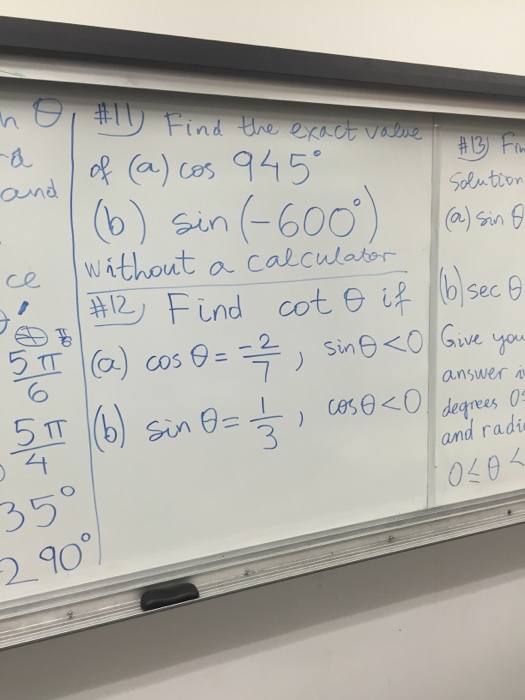 θ
and
ce
5π/6
5π/4
35°
290°
#11) Find the exact value
of (a) cos 945°
(b) sin (-600°)
without a calculator
#12) Find cot θ if
(a) cos θ = -2/7 , sin θ < 0
(b) sin θ = 1/3 , cos θ < 0
#13)
Solution
(a) sin θ
(b) sec θ
Give you
answer
degrees
and radi
0 ≤ θ <